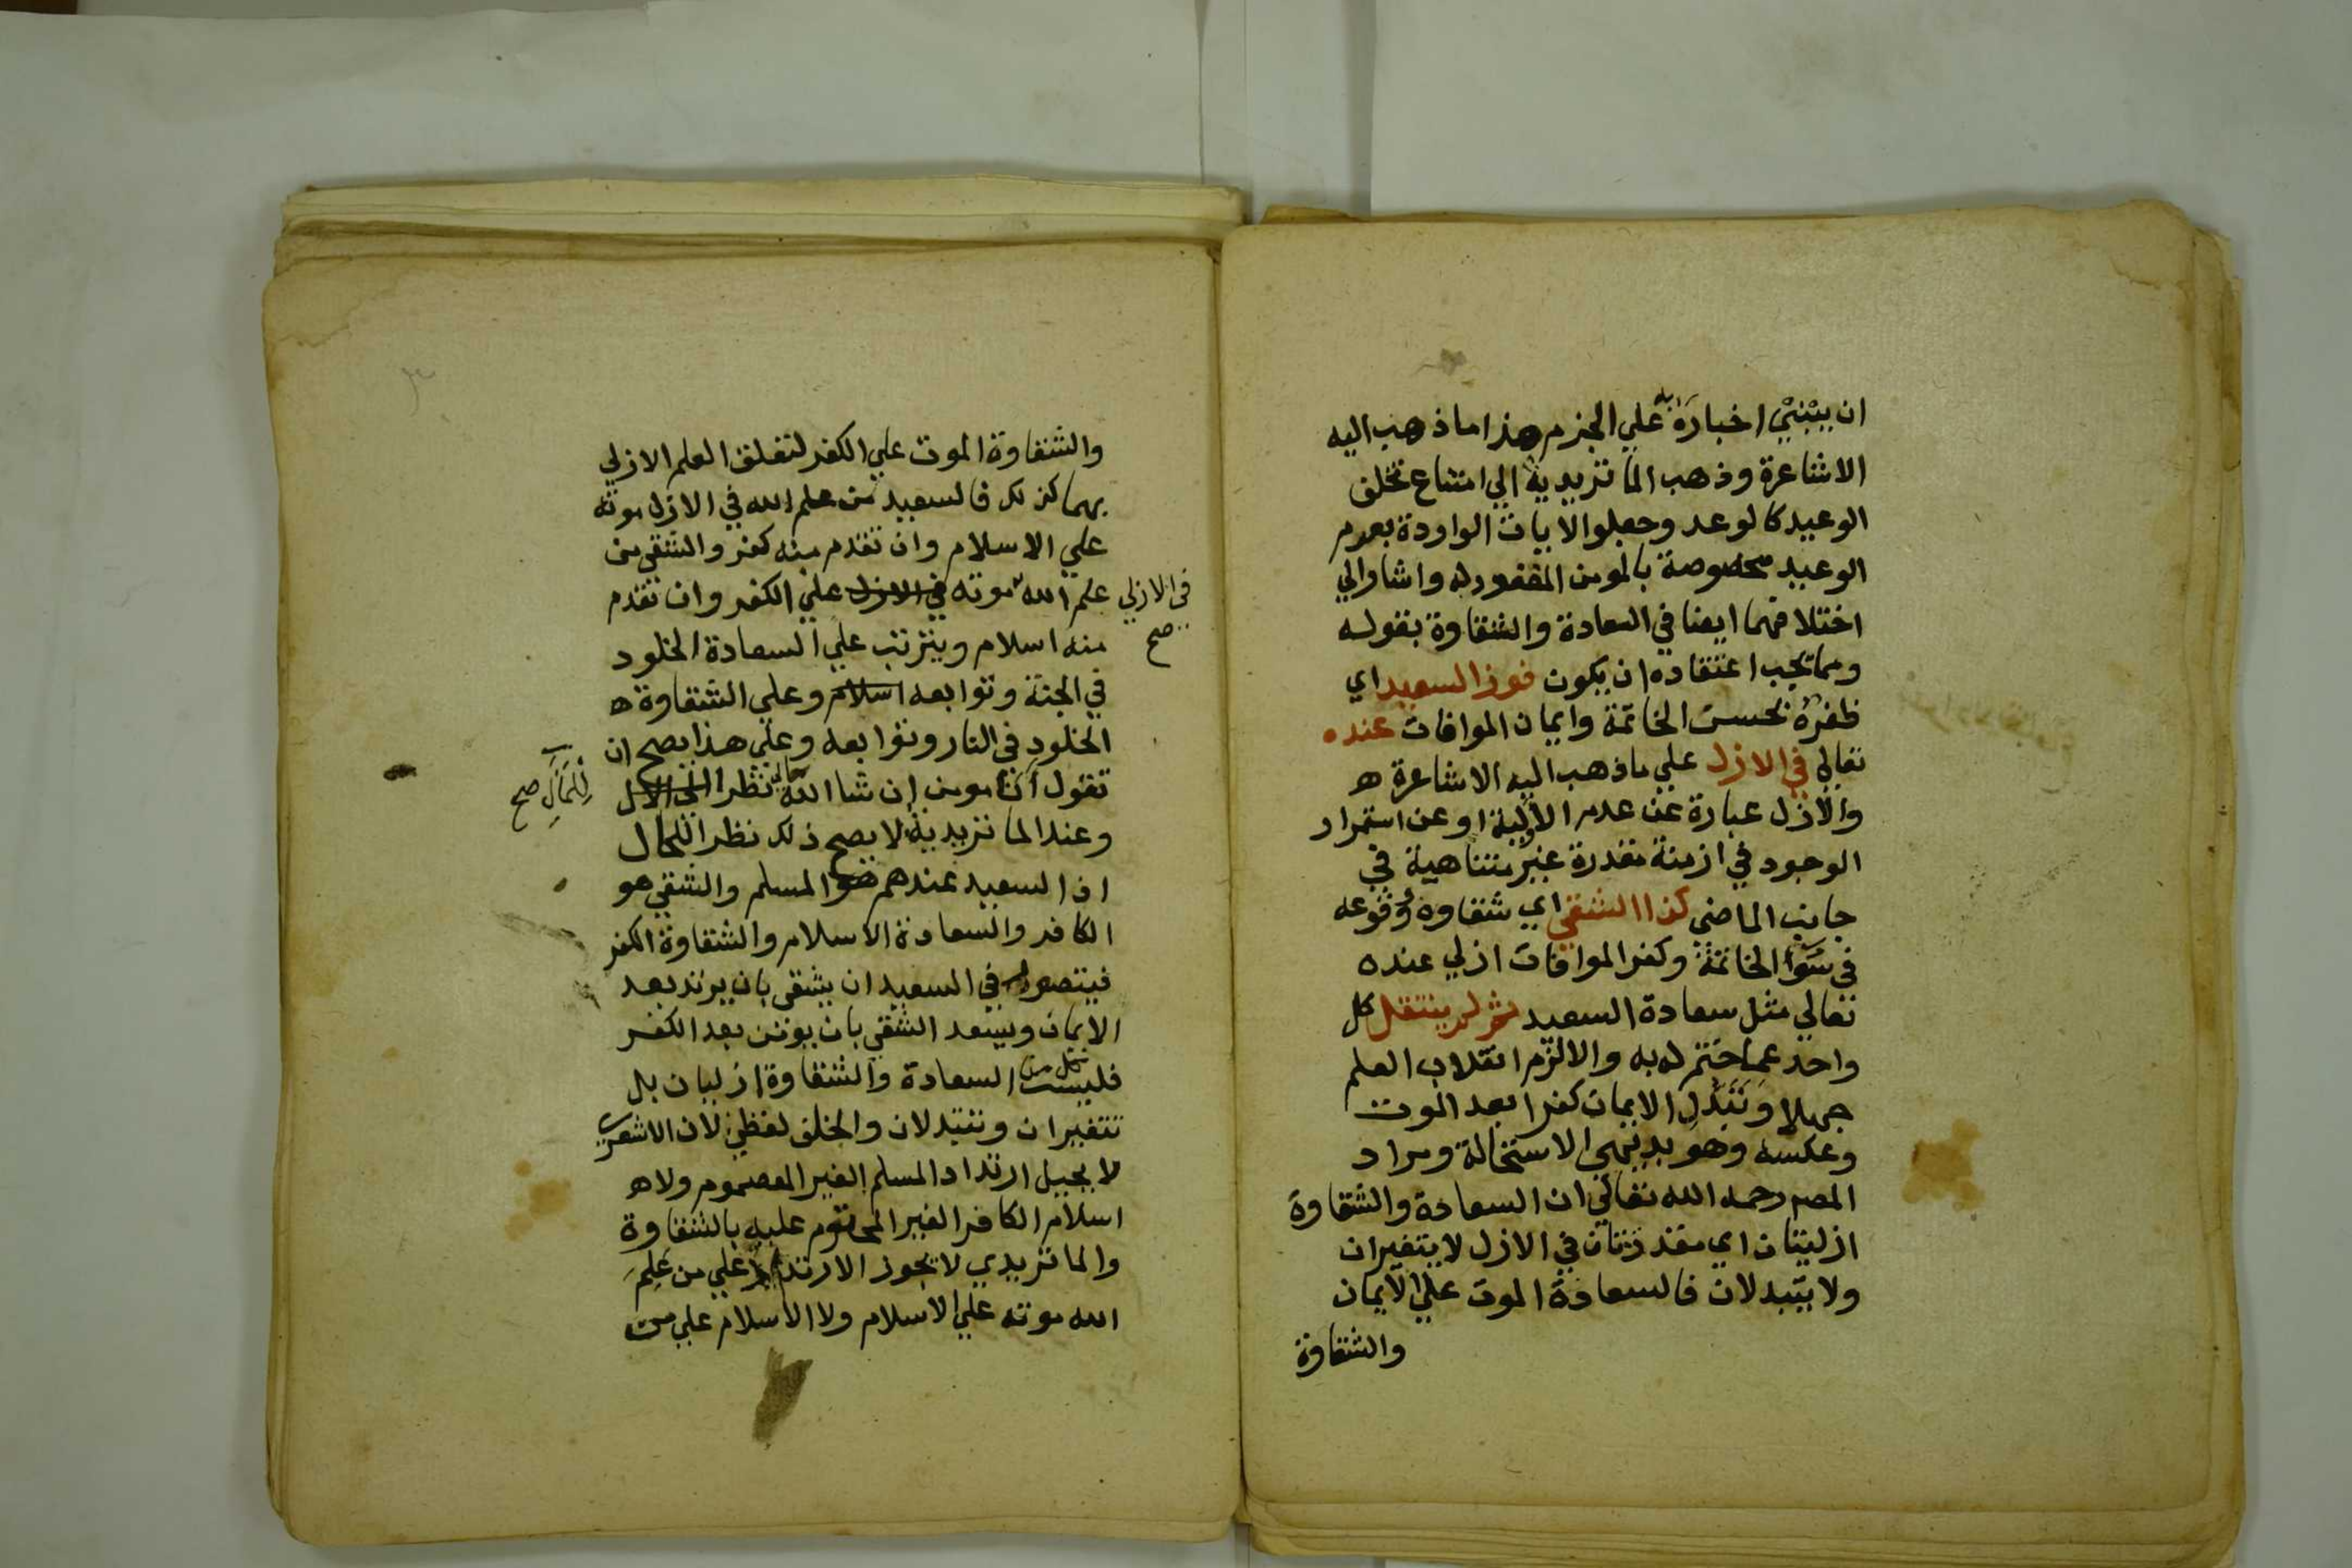 ان يبتني اخباره به علي الجزم هذا ما ذهب اليه
الاشاعرة وذهب الماتريدية الي امتناع تخلف
الوعيد كالوعد وجعلوا الايات الواردة بعموم
الوعيد مخصوصة بالمومن المغفور له واشار الي
اختلافهما ايضا في السعادة والشقاوة بقوله
ومما يجب اعتقاده ان يكون فوز السعيد اي
ظفره بحسن الخاتمة وايمان الموافات عنده
تعالي في الازل علي ما ذهب اليه الاشاعرة ه
والازل عبارة عن عدم الاولية او عن استمرار
الوجود في ازمنة مقدرة غير متناهية في
جانب الماضي كذا الشقي اي شقاوة وقوعه
في سوا الخاتمة وكفر الموافات ازلي عنده
تعالي مثل سعادة السعيد ثم لم ينتقل كل
واحد عما ختم له به والا لزم انقلاب العلم
جهلا وتبدل الايمان كفرا بعد الموت
وعكسه وهو بديهي الاستحالة ومراد
المصر رحمه الله تعالي ان السعادة والشقاوة
ازليتان اي مقدرتان في الازل لا يتغيران
ولا يتبدلان فالسعادة الموت علي الايمان
والشقاوة
والشقاوة الموت علي الكفر لتعلق العلم الازلي
بهما كذلك فالسعيد من علم الله في الازل موته
علي الاسلام وان تقدم منه كفر والشقي من
علم الله موته في الازل علي الكفر وان تقدم
في الازلي صح
منه اسلام ويترتب علي السعادة الخلود
في الجنة وتوابعه اسلام وعلي الشقاوة ه
الخلود في النار وتوابعه وعلي هذا يصح ان
تقول انا مومن ان شا الله تعالي نظرا الي الازل
للمآل صح
وعند الماتريدية لا يصح ذلك نظرا للحال
اذ السعيد عندهم هو المسلم والشقي هو
الكافر والسعادة الاسلام والشقاوة الكفر
فيتصور في السعيد ان يشقي بان يرتد بعد
الايمان ويسعد الشقي بان يومن بعد الكفر
فليست كل من السعادة والشقاوة ازليان بل
تتغيران وتتبدلان والخلف لفظي لان الاشعري
لا يحيل ارتداد المسلم الغير المعصوم ولا ه
اسلام الكافر الغير المحتوم عليه بالشقاوة
والماتريدي لا يجوز الارتداد علي من علم
الله موته علي الاسلام ولا الاسلام علي من